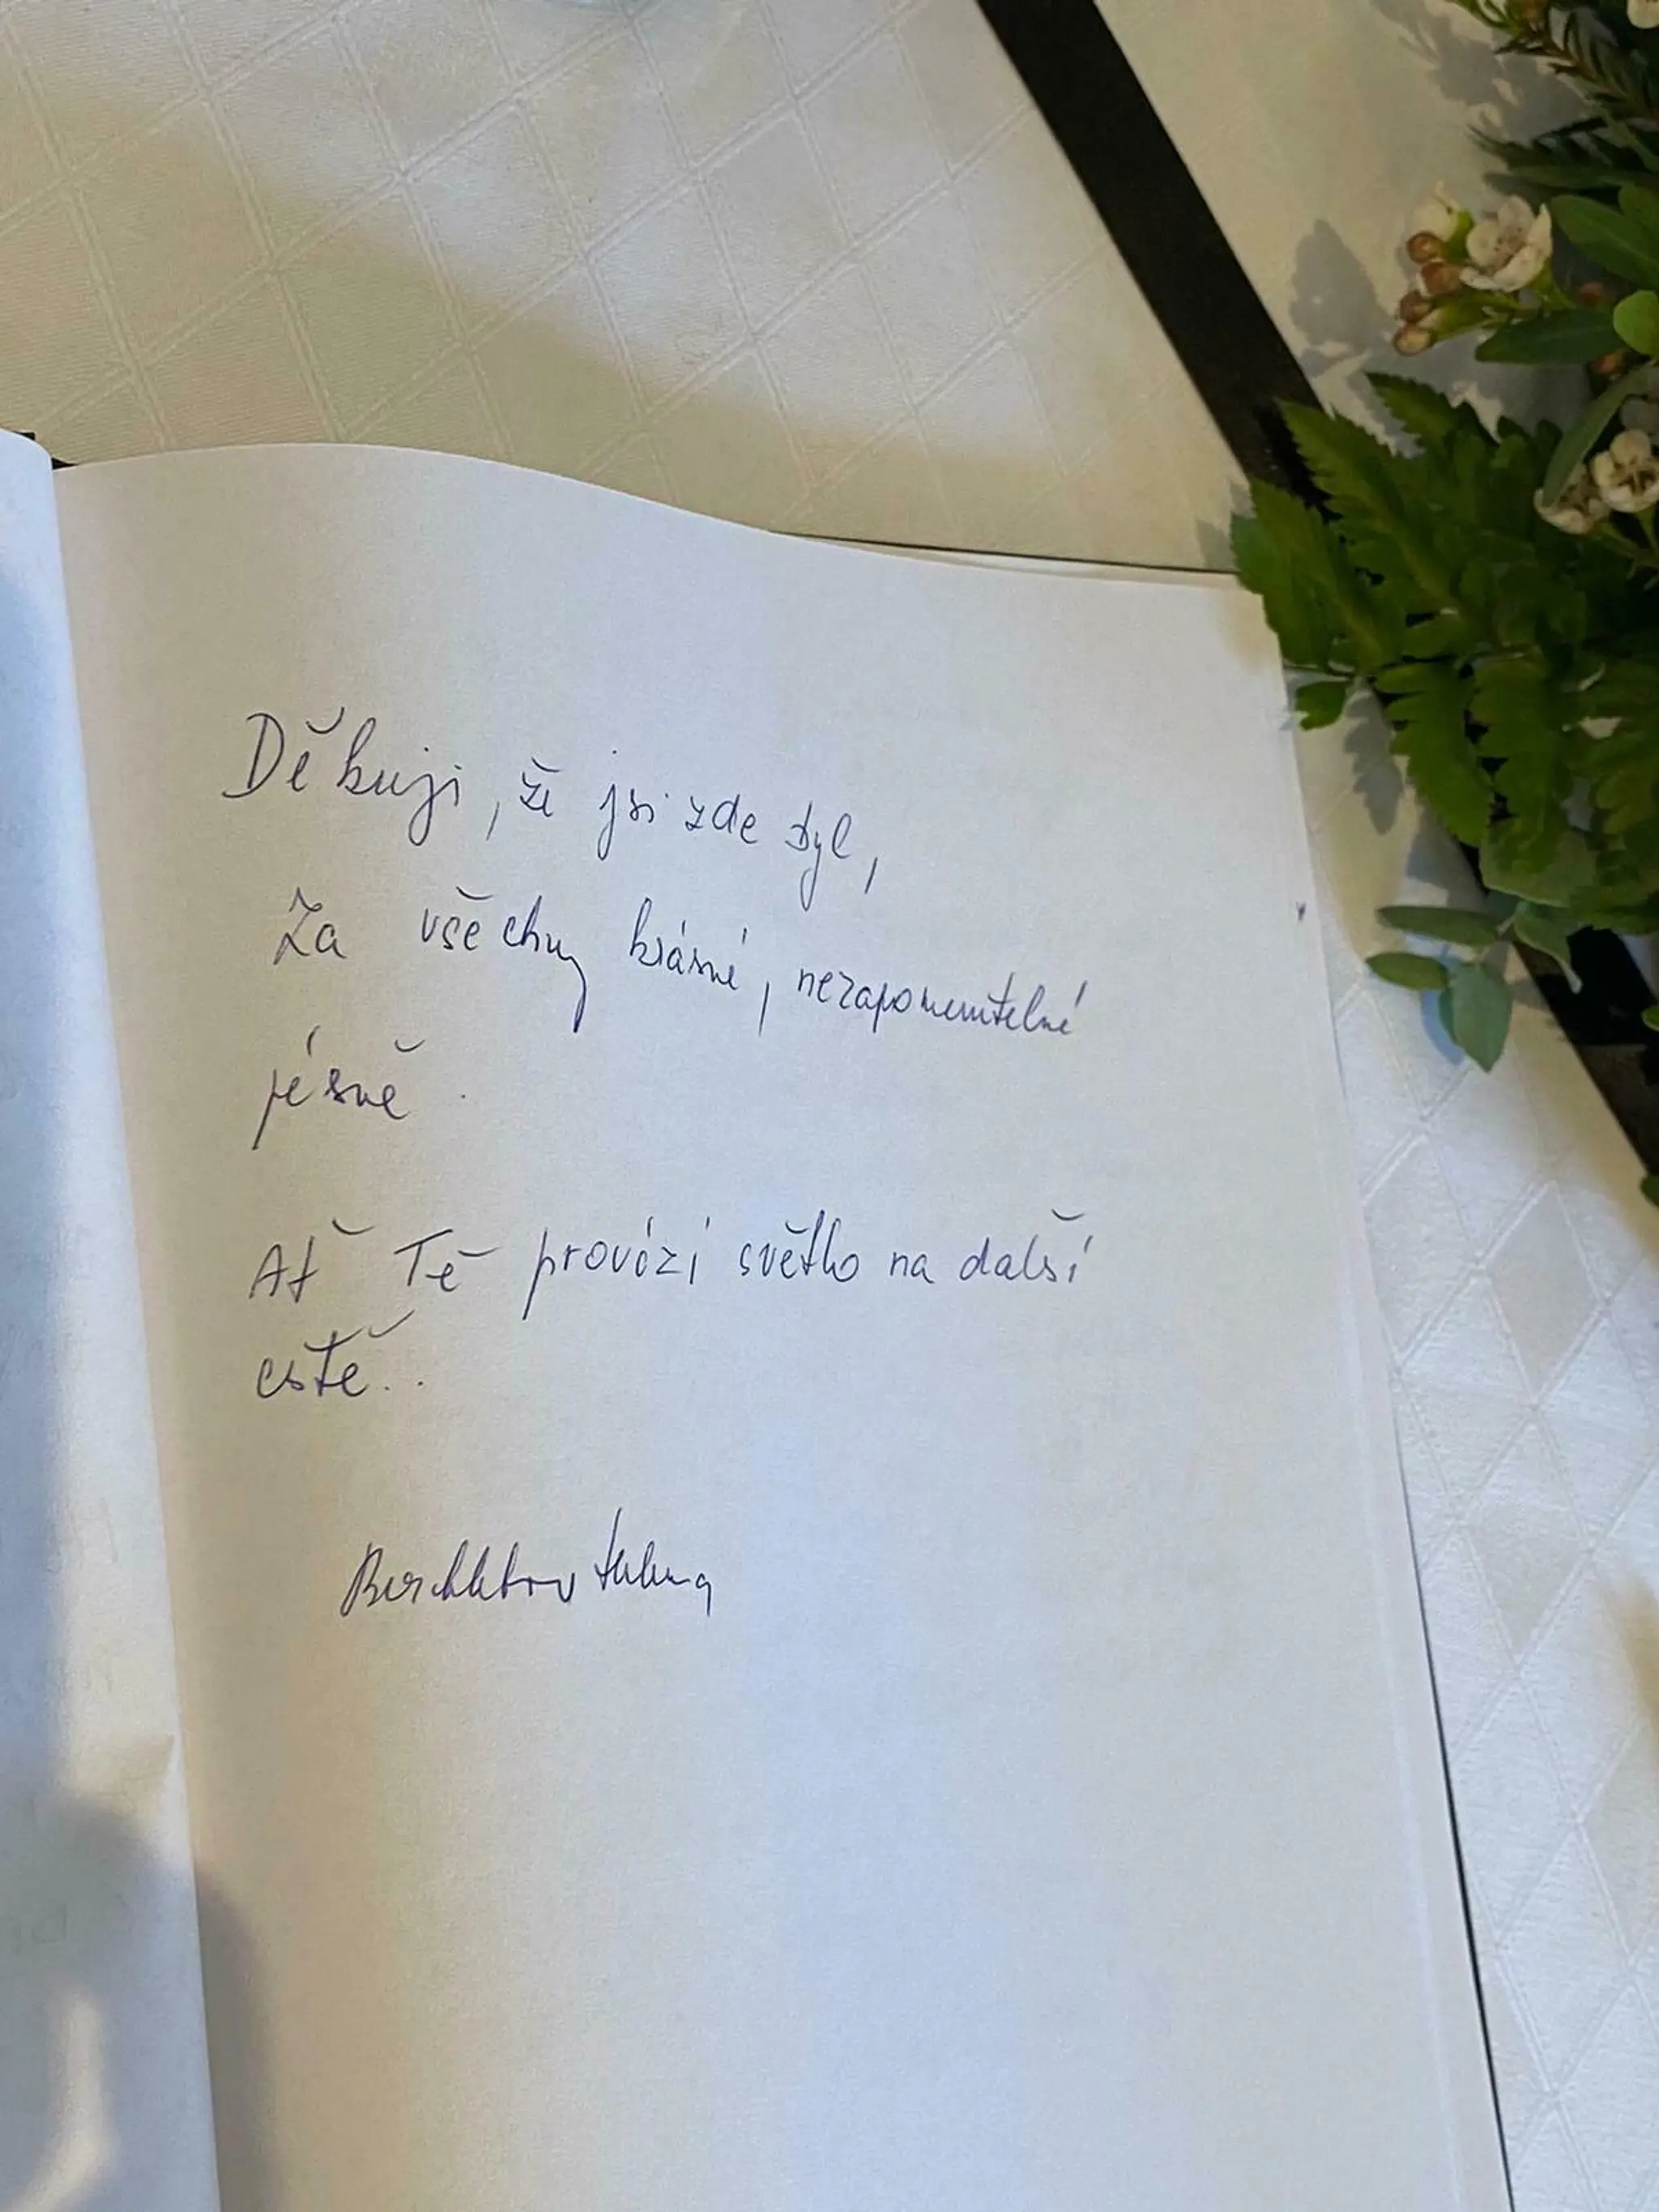 Děkuji, že jsi zde byl,
Za všechny krásné, nezapomenutelné
písně.
Ať Tě provází světlo na další
cestě..